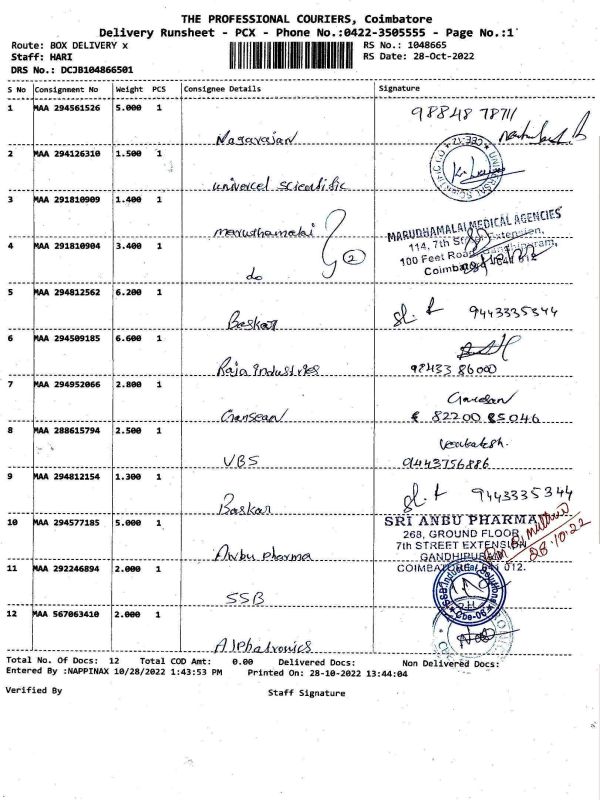 THE PROFESSIONAL COURIERS, Coimbatore
Delivery Runsheet - PCX - Phone No.:0422-3505555 - Page No.:1
Route: BOX DELIVERY x RS No.: 1048665
Staff: HARI RS Date: 28-Oct-2022
DRS No.: DCJB104866501
S No Consignment No Weight PCS Consignee Details Signature
1 MAA 294561526 5.000 1 98848 78711
Nagarajan
2 MAA 294126310 1.500 1
univercel scientific
UNIVERSAL SCIENTIFIC CO CBE-12
3 MAA 291810909 1.400 1
marudhamalai
MARUDHAMALAI MEDICAL AGENCIES
4 MAA 291810904 3.400 1 2
114, 7th Street Extension,
100 Feet Road, Gandhipuram,
do Coimbatore - 641 012
5 MAA 294812562 6.200 1
Baskar 9443335344
6 MAA 294509185 6.600 1
Raja Industries 98433 86000
7 MAA 294952066 2.800 1
Gansean 82200 85046
8 MAA 288615794 2.500 1 Venkatesh.
VBS 9443756886
9 MAA 294812154 1.300 1
Baskar 9443335344
10 MAA 294577185 5.000 1
SRI ANBU PHARMA
268, GROUND FLOOR
7th STREET EXTENSION
GANDHIPURAM
COIMBATORE-641 012.
28.10.22
Anbu pharma
11 MAA 292246894 2.000 1
SSB
SSB Industrial Solutions Cbe-06
12 MAA 567063410 2.000 1
Alphatronics
Total No. Of Docs: 12 Total COD Amt: 0.00 Delivered Docs: Non Delivered Docs:
Entered By :NAPPINAX 10/28/2022 1:43:53 PM Printed On: 28-10-2022 13:44:04
Verified By Staff Signature